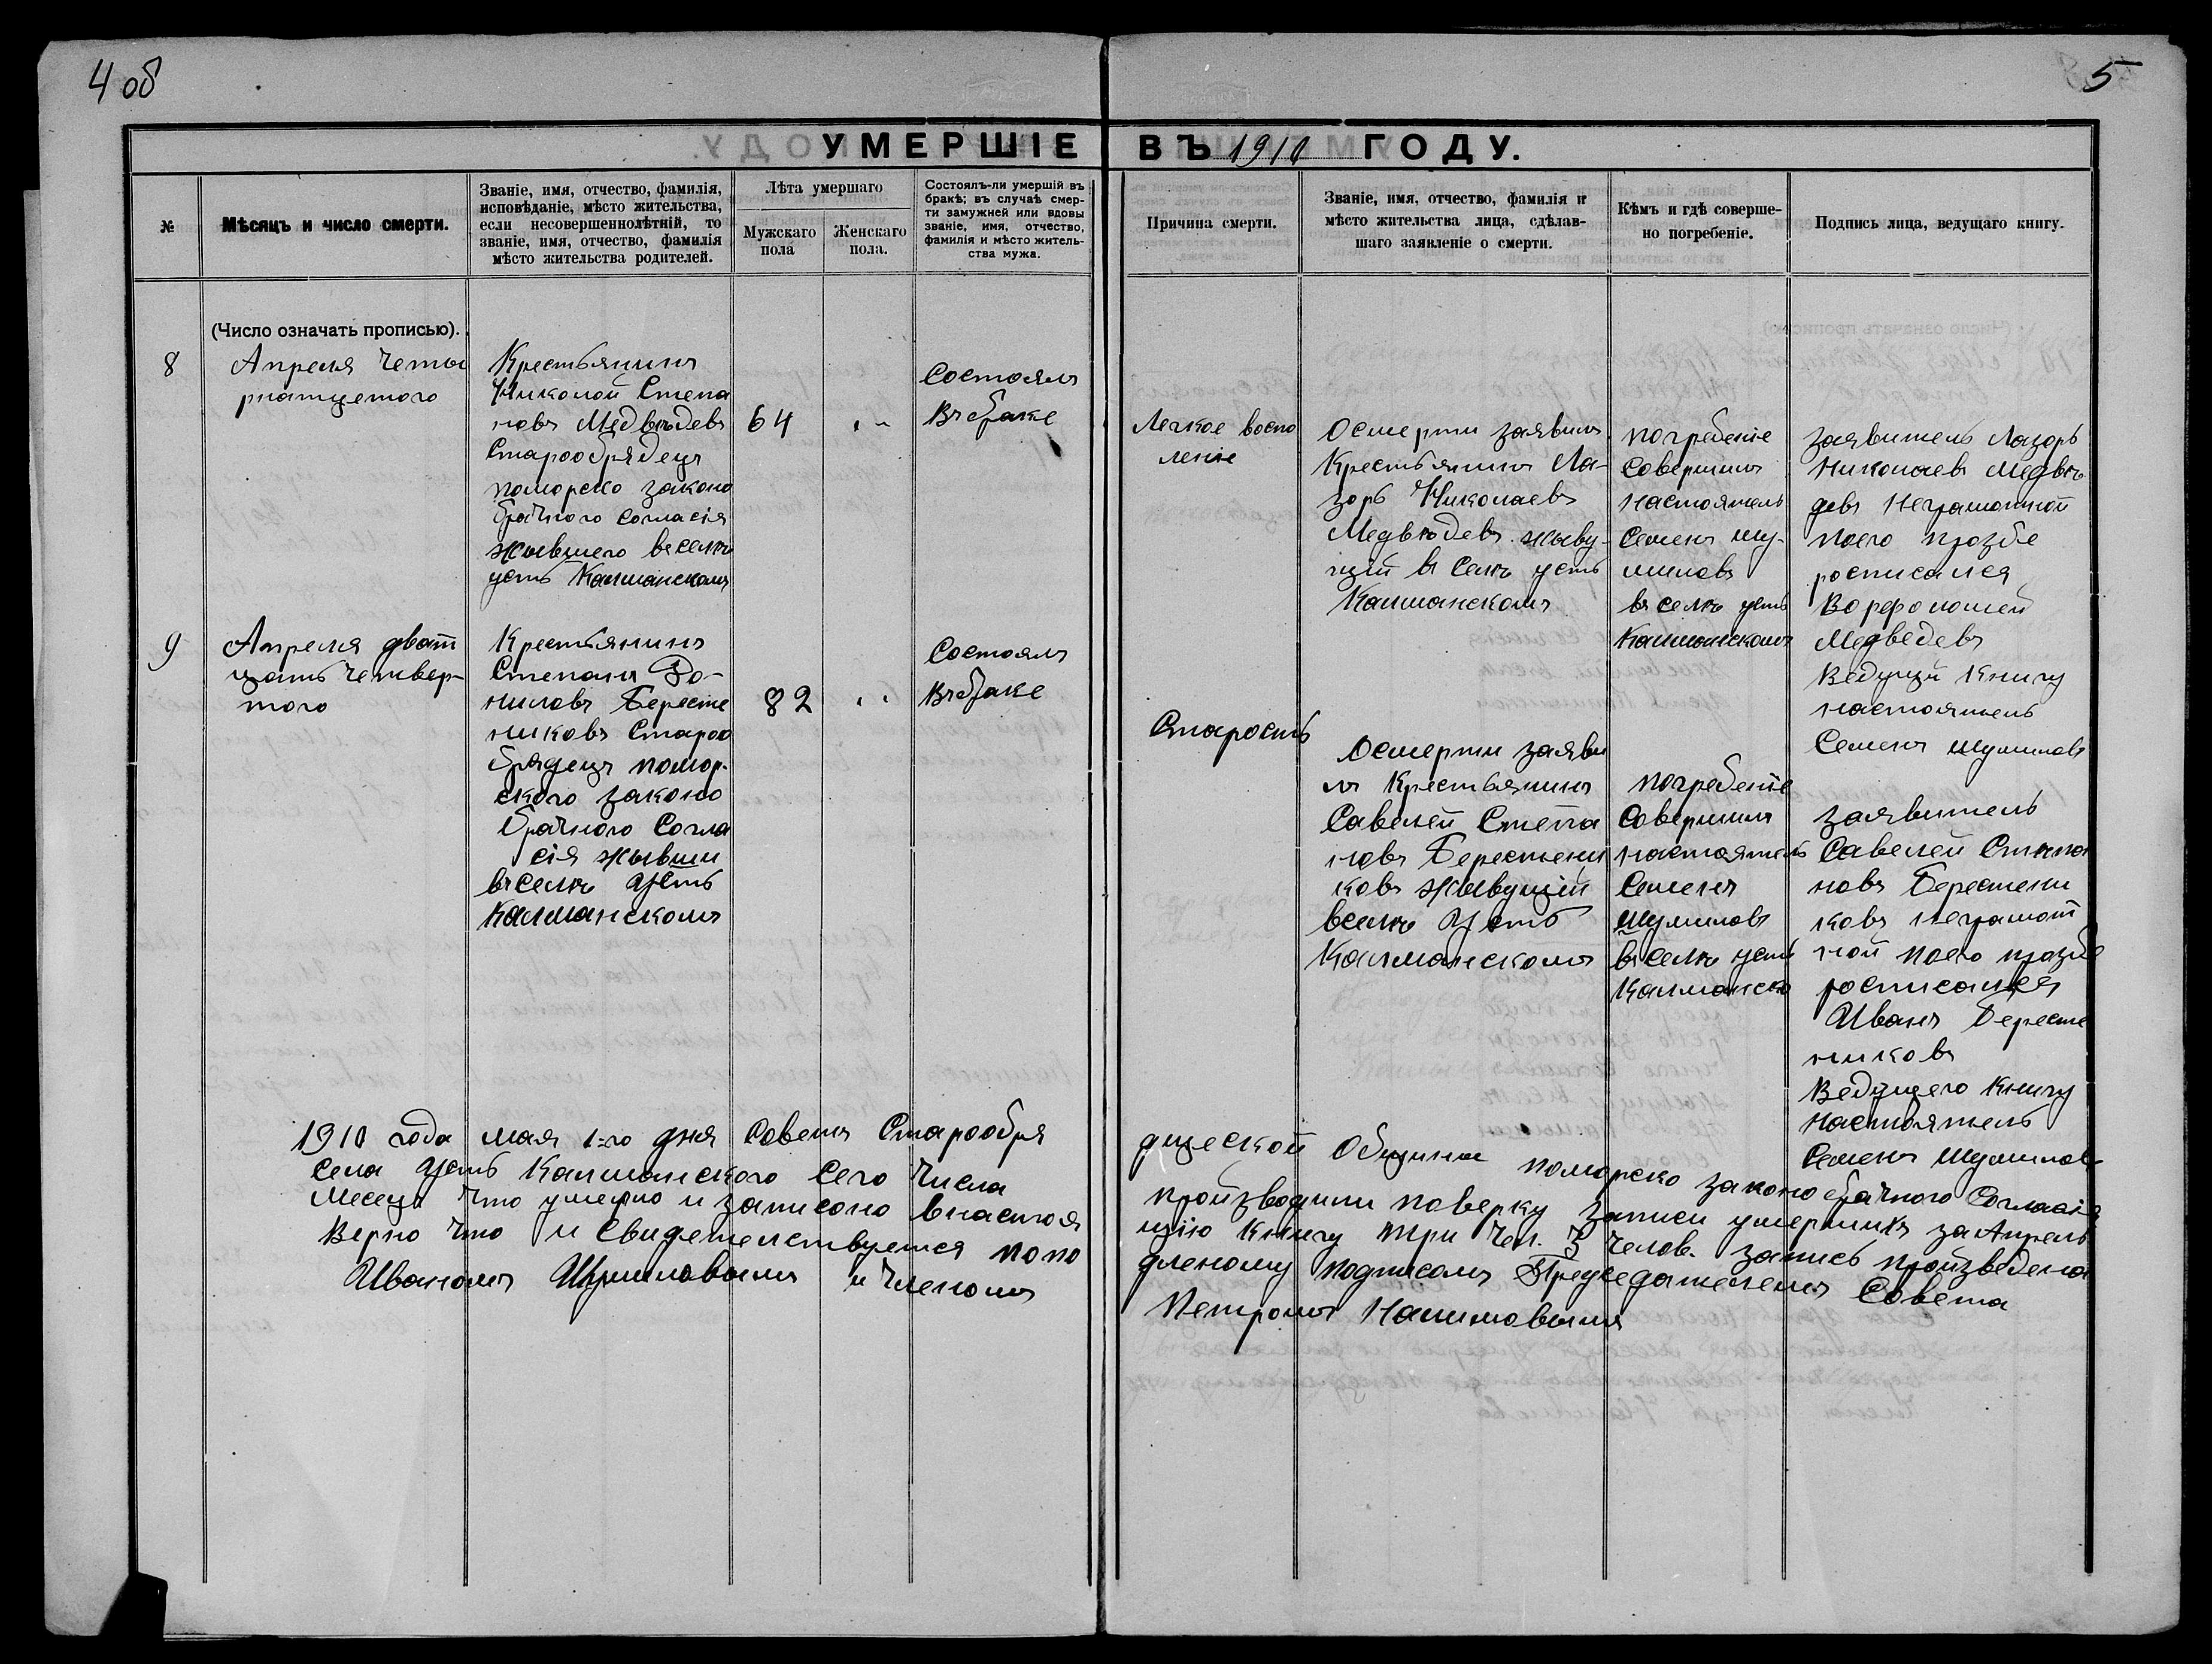 4 об
5
УМЕРШІЕ ВЪ 1910 ГОДУ.
№
Мѣсяцъ и число смерти.
Званіе, имя, отчество, фамилія,
исповѣданіе, мѣсто жительства,
если несовершеннолѣтній, то
званіе, имя, отчество, фамилія
мѣсто жительства родителей.
Лѣта умершаго
Мужскаго
пола
Женскаго
пола.
Состоялъ-ли умершій въ
бракѣ; въ случаѣ смер-
ти замужней или вдовы
званіе, имя, отчество,
фамилія и мѣсто житель-
ства мужа.
Причина смерти.
Званіе, имя, отчество, фамилія и
мѣсто жительства лица, сдѣлав-
шаго заявленіе о смерти.
Кѣмъ и гдѣ соверше-
но погребеніе.
Подпись лица, ведущаго книгу.
(Число означать прописью).
8
Апреля Четы
рнатцетого
Крестьянинъ
Николой Степа
новъ Медвѣдевъ
Старообрядецъ
поморско законо
брачного согласія
жывшего вселѣ
усть Калманскомъ
64
Состоялъ
Въ браке
Легкое воспо
ление
Осмерти заявилъ
Крестьянинъ Ла-
зорь Николаевъ
Медвѣдевъ жыву-
щій в Селѣ усть
Калманскомъ
погребеніе
совершилъ
настоятель
Семенъ шу-
миловъ
въ селѣ усть
Калманскомъ
заявитель Лазорь
Николаевъ Медвѣ
девъ Неграмотной
поего прозбе
росписался
Ворфоломей
Медведевъ
Ведущій Книгу
настоятель
Семенъ шумиловъ
9
Апреля дват
цать Четвер-
того
Крестьянинъ
Степанъ Да-
ниловъ Бересте
никовъ Старо
брядецъ помор-
ского законо
брачного Согла
сія жывши
въ селѣ Усть
Калманскомъ
82
Состоялъ
Въ браке
Старость
Осмерти заяви
лъ Крестьянинъ
Савелей Степа
новъ Берестени
ковъ жывущій
вселѣ Усть
Калманскомъ
погребеніе
Совершилъ
настоятель
Семенъ
Шумиловъ
въ селѣ усть
Калманско
заявитель
Савелей Степа
новъ Берестени
ковъ неграмот
ной поего прозбе
росписался
Иванъ Бересте
никовъ
Ведущего Книгу
Настоятель
Семенъ Шумиловъ
1910 года мая 1=го дня Советъ Старообря
дческой Общины поморско законо брачного Согласія
Села Усть Калманского Сего Числа
производили поверку записи умершихъ за Апрель
Месецъ Что умерло и записоно внастоя
щію Книгу три чел. 3 челов. запись произведена
Верно Что и Свидетельствуется попо
дленому подписомъ Председателемъ Совета
Иваномъ Шумиловымъ и Членомъ
Петромъ